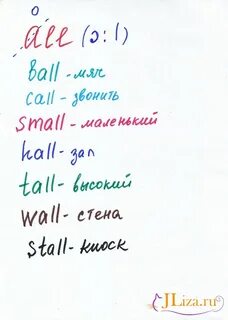 o
all (ɔ:l)
ball - мяч
call - звонить
small - маленький
hall - зал
tall - высокий
wall - стена
stall - киоск
JLiza.ru